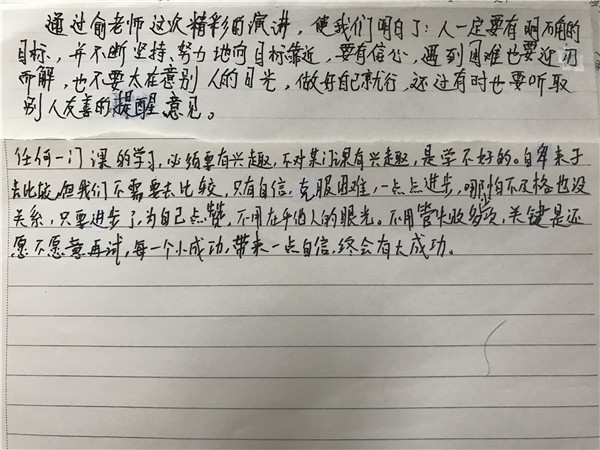 通过俞老师这次精彩的演讲，使我们明白了：人一定要有明确的
目标，并不断坚持、努力地向目标靠近，要有信心，遇到困难也要迎刃
而解，也不要太在意别人的目光，做好自己就行，还过有时也要听取
别人友善的提醒意见。
任何一门课的学习，必须要有兴趣，不对某门课有兴趣，是学不好的。自卑来于
去比较，但我们不需要去比较，只有自信，克服困难，一点点进步，哪怕不及格也没
关系，只要进步了，为自己点赞，不用在乎他人的眼光，不用管失败多次，关键是还
愿不愿意再试，每一个小成功，带来一点自信，终会有大成功。